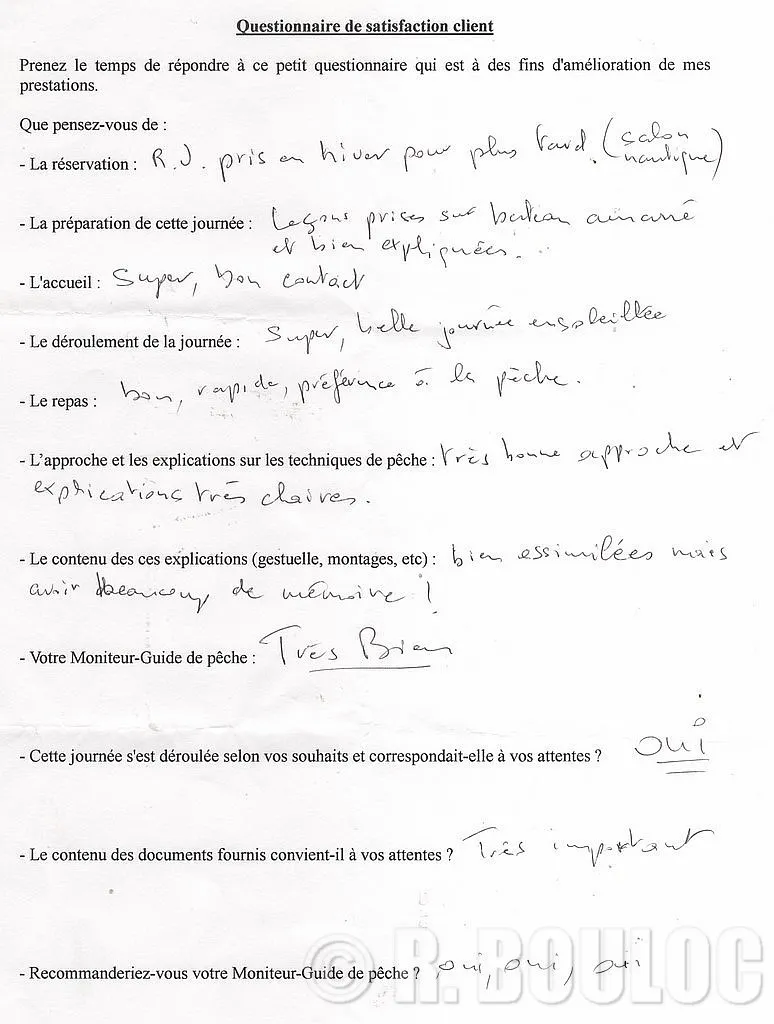 Questionnaire de satisfaction client
Prenez le temps de répondre à ce petit questionnaire qui est à des fins d'amélioration de mes
prestations.
Que pensez-vous de :
- La réservation : R.V. pris en hiver pour plus tard. (salon
nautique)
- La préparation de cette journée : Leçons prises sur bateau amarré
et bien expliquées.
- L'accueil : Super, bon contact
- Le déroulement de la journée : Super, belle journée ensoleillée
- Le repas : bon, rapide, préférence à la pêche.
- L'approche et les explications sur les techniques de pêche : très bonne approche et
explications très claires.
- Le contenu des ces explications (gestuelle, montages, etc) : bien essimilées mais
avoir beaucoup de mémoire !
- Votre Moniteur-Guide de pêche : Très Bien
- Cette journée s'est déroulée selon vos souhaits et correspondait-elle à vos attentes ? oui
- Le contenu des documents fournis convient-il à vos attentes ? Très important
- Recommanderiez-vous votre Moniteur-Guide de pêche ? oui, oui, oui
© R. BOULOC